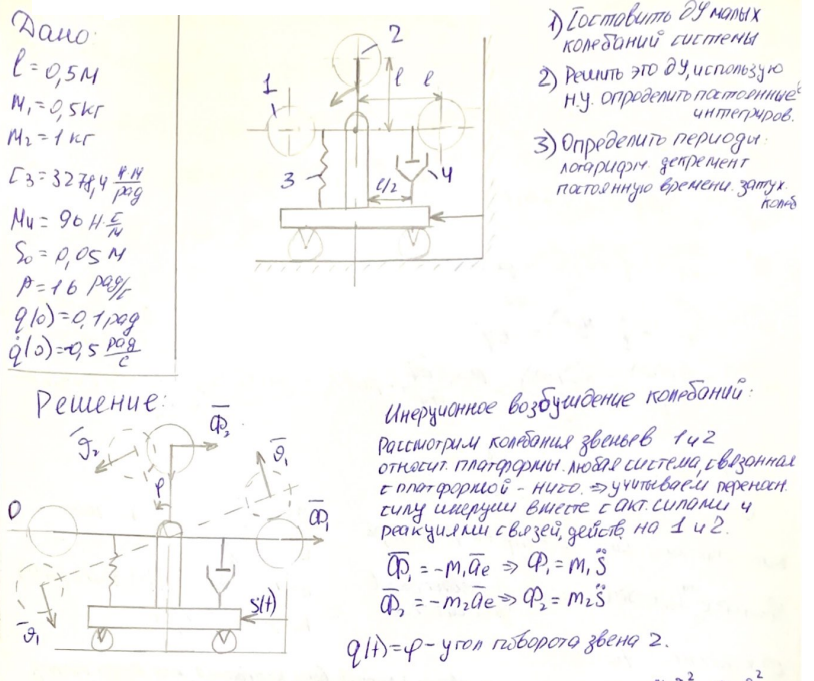 Дано:
l = 0,5 м
m₁ = 0,5 кг
m₂ = 1 кг
C₃ = 3278,4 Н·м/рад
μ₄ = 96 Н·с/м
S₀ = 0,05 м
p = 16 рад/с
q(0) = 0,1 рад
q̇(0) = -0,5 рад/с
1
2
l
l
3
4
l/2
1) Составить ДУ малых
колебаний системы
2) Решить это ДУ, использую
н.у. определить постоянные
интегриров.
3) Определить периоды.
логарифм. декремент
постоянную времени. затух.
колеб
Решение:
Ф̄₂
ϑ̄₂
φ
ϑ̄₁
0
Ф̄₁
S(t)
ϑ̄₁
Инерционное возбуждение колебаний:
Рассмотрим колебания звеньев 1 и 2
относит. платформы. любая система, связанная
с платформой - нисо. ⇒ учитываем переносн.
силу инерции вместе с акт. силами и
реакциями связей, действ. на 1 и 2.
Ф̄₁ = -m₁āe ⇒ Ф₁ = m₁S̈
Ф̄₂ = -m₂āe ⇒ Ф₂ = m₂S̈
q(t) = φ - угол поворота звена 2.